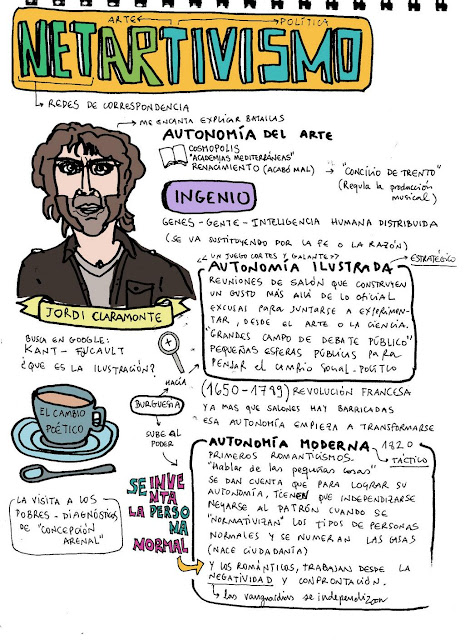 ARTE POLÍTICA
NETARTIVISMO
REDES DE CORRESPONDENCIA
ME ENCANTA EXPLICAR BATALLAS
AUTONOMÍA DEL ARTE
COSMOPOLIS
"ACADEMIAS MEDITERRÁNEAS"
RENACIMIENTO (ACABÓ MAL)
"CONCILIO DE TRENTO"
(Regula la producción
musical)
INGENIO
GENES - GENTE - INTELIGENCIA HUMANA DISTRIBUIDA
(SE VA SUSTITUYENDO POR LA FE O LA RAZÓN)
<< UN JUEGO CORTES Y GALANTE >>
ESTRATÉGICO
AUTONOMÍA ILUSTRADA
REUNIONES DE SALÓN QUE CONSTRUYEN
UN GUSTO MÁS ALLÁ DE LO OFICIAL
EXCUSAS PARA JUNTARSE A EXPERIMEN-
TAR, DESDE EL ARTE O LA CIENCIA.
"GRANDES CAMPO DE DEBATE PÚBLICO"
PEQUEÑAS ESFERAS PÚBLICAS PARA
PENSAR EL CAMBIO SOCIAL-POLÍTICO
JORDI CLARAMONTE
BUSCA EN GOOGLE:
KANT - FOUCAULT
¿QUE ES LA ILUSTRACIÓN?
HACIA
BURGUESÍA
SUBE AL
PODER
(1650-1789) REVOLUCIÓN FRANCESA
YA MAS QUE SALONES HAY BARRICADAS
ESA AUTONOMÍA EMPIEZA A TRANSFORMARSE
EL CAMBIO
POÉTICO
AUTONOMÍA MODERNA 1820
TÁCTICO
PRIMEROS ROMANTICISMOS.
"Hablar de las pequeñas cosas"
SE DAN CUENTA QUE PARA LOGRAR SU
AUTONOMÍA, TIENEN QUE INDEPENDIZARSE
NEGARSE AL PATRÓN CUANDO SE
"NORMATIVIZAN" LOS TIPOS DE PERSONAS
NORMALES Y SE NUMERAN LAS CASAS
(NACE CIUDADANÍA)
Y LOS ROMÁNTICOS, TRABAJAN DESDE LA
NEGATIVIDAD Y CONFRONTACIÓN.
Las vanguardias se independizan
SE INVE
NTA
LA PERSO
NA
NORMAL
LA VISITA A LOS
POBRES - DIAGNÓSTICOS
DE "CONCEPCIÓN
ARENAL"